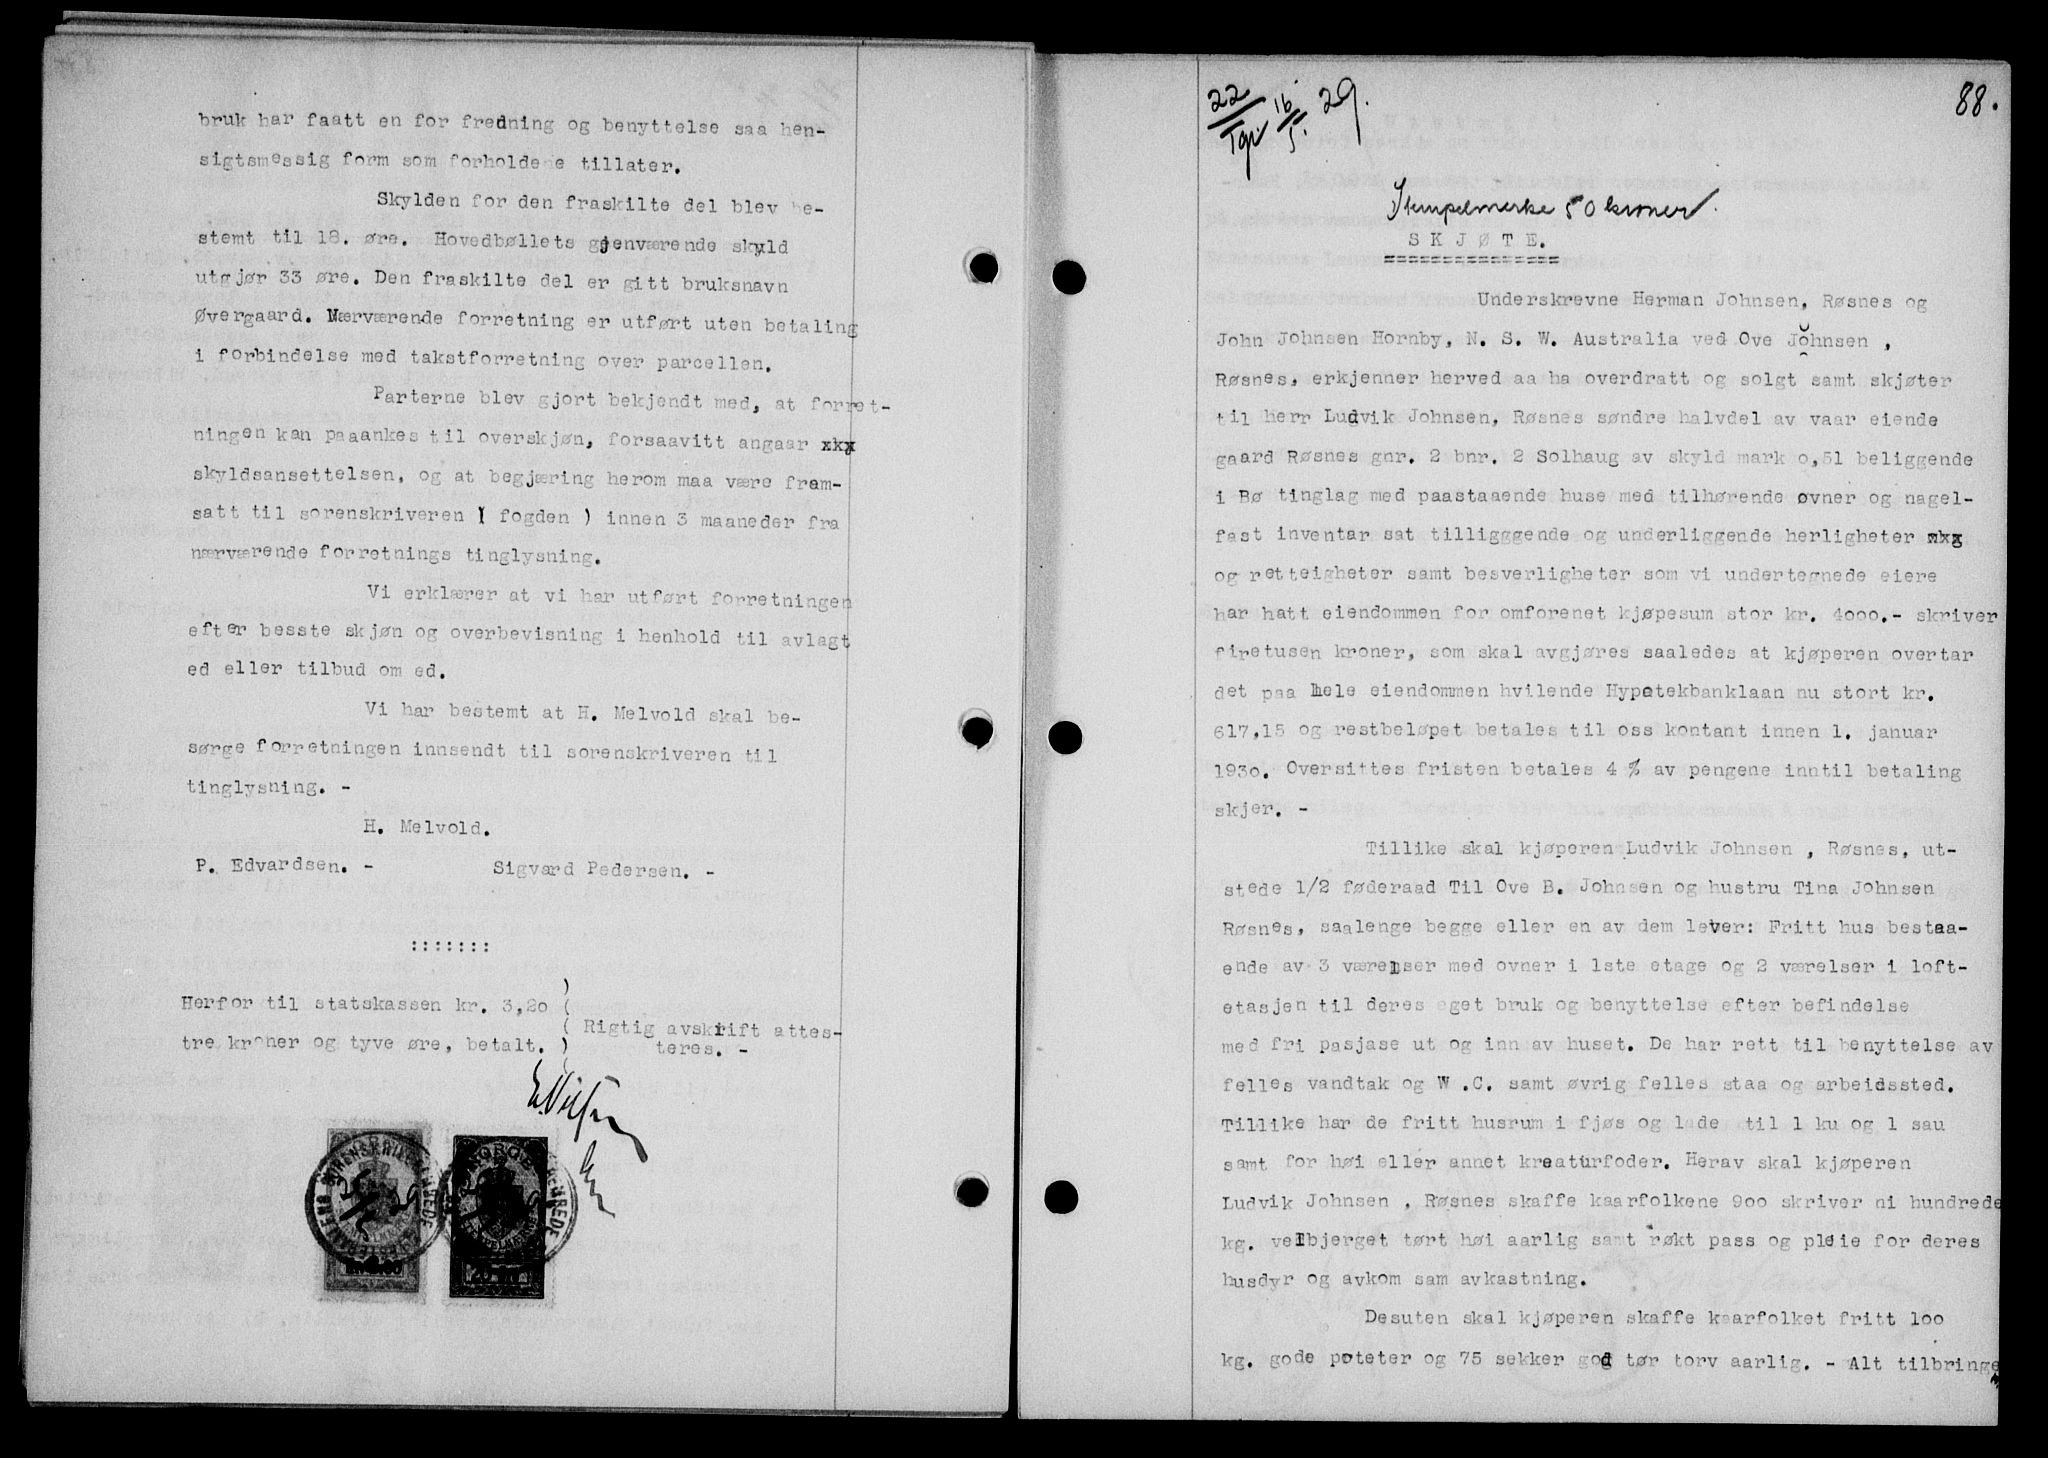 bruk har faatt en for fredning og benyttelse saa hen-
sigtsmessig form som forholdene tillater.
Skylden for den fraskilte del blev be-
stemt til 18. øre. Hovedbøllets gjenværende skyld
utgjør 33 øre. Den fraskilte del er gitt bruksnavn
Øvergaard. Nærværende forretning er utført uten betaling
i forbindelse med takstforretning over parcellen.
Parterne blev gjort bekjendt med, at forret-
ningen kan paaankes til overskjøn, forsaavitt angaar
skyldsansettelsen, og at begjæring herom maa være fram-
satt til sorenskriveren ( fogden ) innen 3 maaneder fra
nærværende forretnings tinglysning.
Vi erklærer at vi har utført forretningen
efter besste skjøn og overbevisning i henhold til avlagt
ed eller tilbud om ed.
Vi har bestemt at H. Melvold skal be-
sørge forretningen innsendt til sorenskriveren til
tinglysning. -
H. Melvold.
P. Edvardsen. - Sigvard Pedersen. -
:::::::
Herfor til statskassen kr. 3,20
tre kroner og tyve øre, betalt.
Rigtig avskrift attes-
teres. -
NORGE
22/Tgl. 16/5. 29.
88.
Stempelmerke 50 kroner.
SKJØTE.
===============
Underskrevne Herman Johnsen, Røsnes og
John Johnsen Hornby, N. S. W. Australia ved Ove Johnsen ,
Røsnes, erkjenner herved aa ha overdratt og solgt samt skjøter
til herr Ludvik Johnsen, Røsnes søndre halvdel av vaar eiende
gaard Røsnes gnr. 2 bnr. 2 Solhaug av skyld mark 0,51 beliggende
i Bø tinglag med paastaaende huse med tilhørende øvner og nagel-
fast inventar sat tilligggende og underliggende herligheter
og retteigheter samt besverligheter som vi undertegnede eiere
har hatt eiendommen for omforenet kjøpesum stor kr. 4000.- skriver
firetusen kroner, som skal avgjøres saaledes at kjøperen overtar
det paa hele eiendommen hvilende Hypotekbanklaan nu stort kr.
617,15 og restbeløpet betales til oss kontant innen 1. januar
1930. Oversittes fristen betales 4 % av pengene inntil betaling
skjer. -
Tillike skal kjøperen Ludvik Johnsen , Røsnes, ut-
stede 1/2 føderaad Til Ove B. Johnsen og hustru Tina Johnsen
Røsnes, saalenge begge eller en av dem lever: Fritt hus bestaa-
ende av 3 værelser med ovner i 1ste etage og 2 værelser i loft-
etasjen til deres eget bruk og benyttelse efter befindelse
med fri pasjase ut og inn av huset. De har rett til benyttelse av
felles vandtak og W .C. samt øvrig felles staa og arbeidssted.
Tillike har de fritt husrum i fjøs og lade til 1 ku og 1 sau
samt for høi eller annet kreaturfoder. Herav skal kjøperen
Ludvik Johnsen , Røsnes skaffe kaarfolkene 900 skriver ni hundrede
kg. velbjerget tørt høi aarlig samt røkt pass og pleie for deres
husdyr og avkom sam avkastning.
Desuten skal kjøperen skaffe kaarfolket fritt 100
kg. gode poteter og 75 sekker god tør torv aarlig. - Alt tilbringe